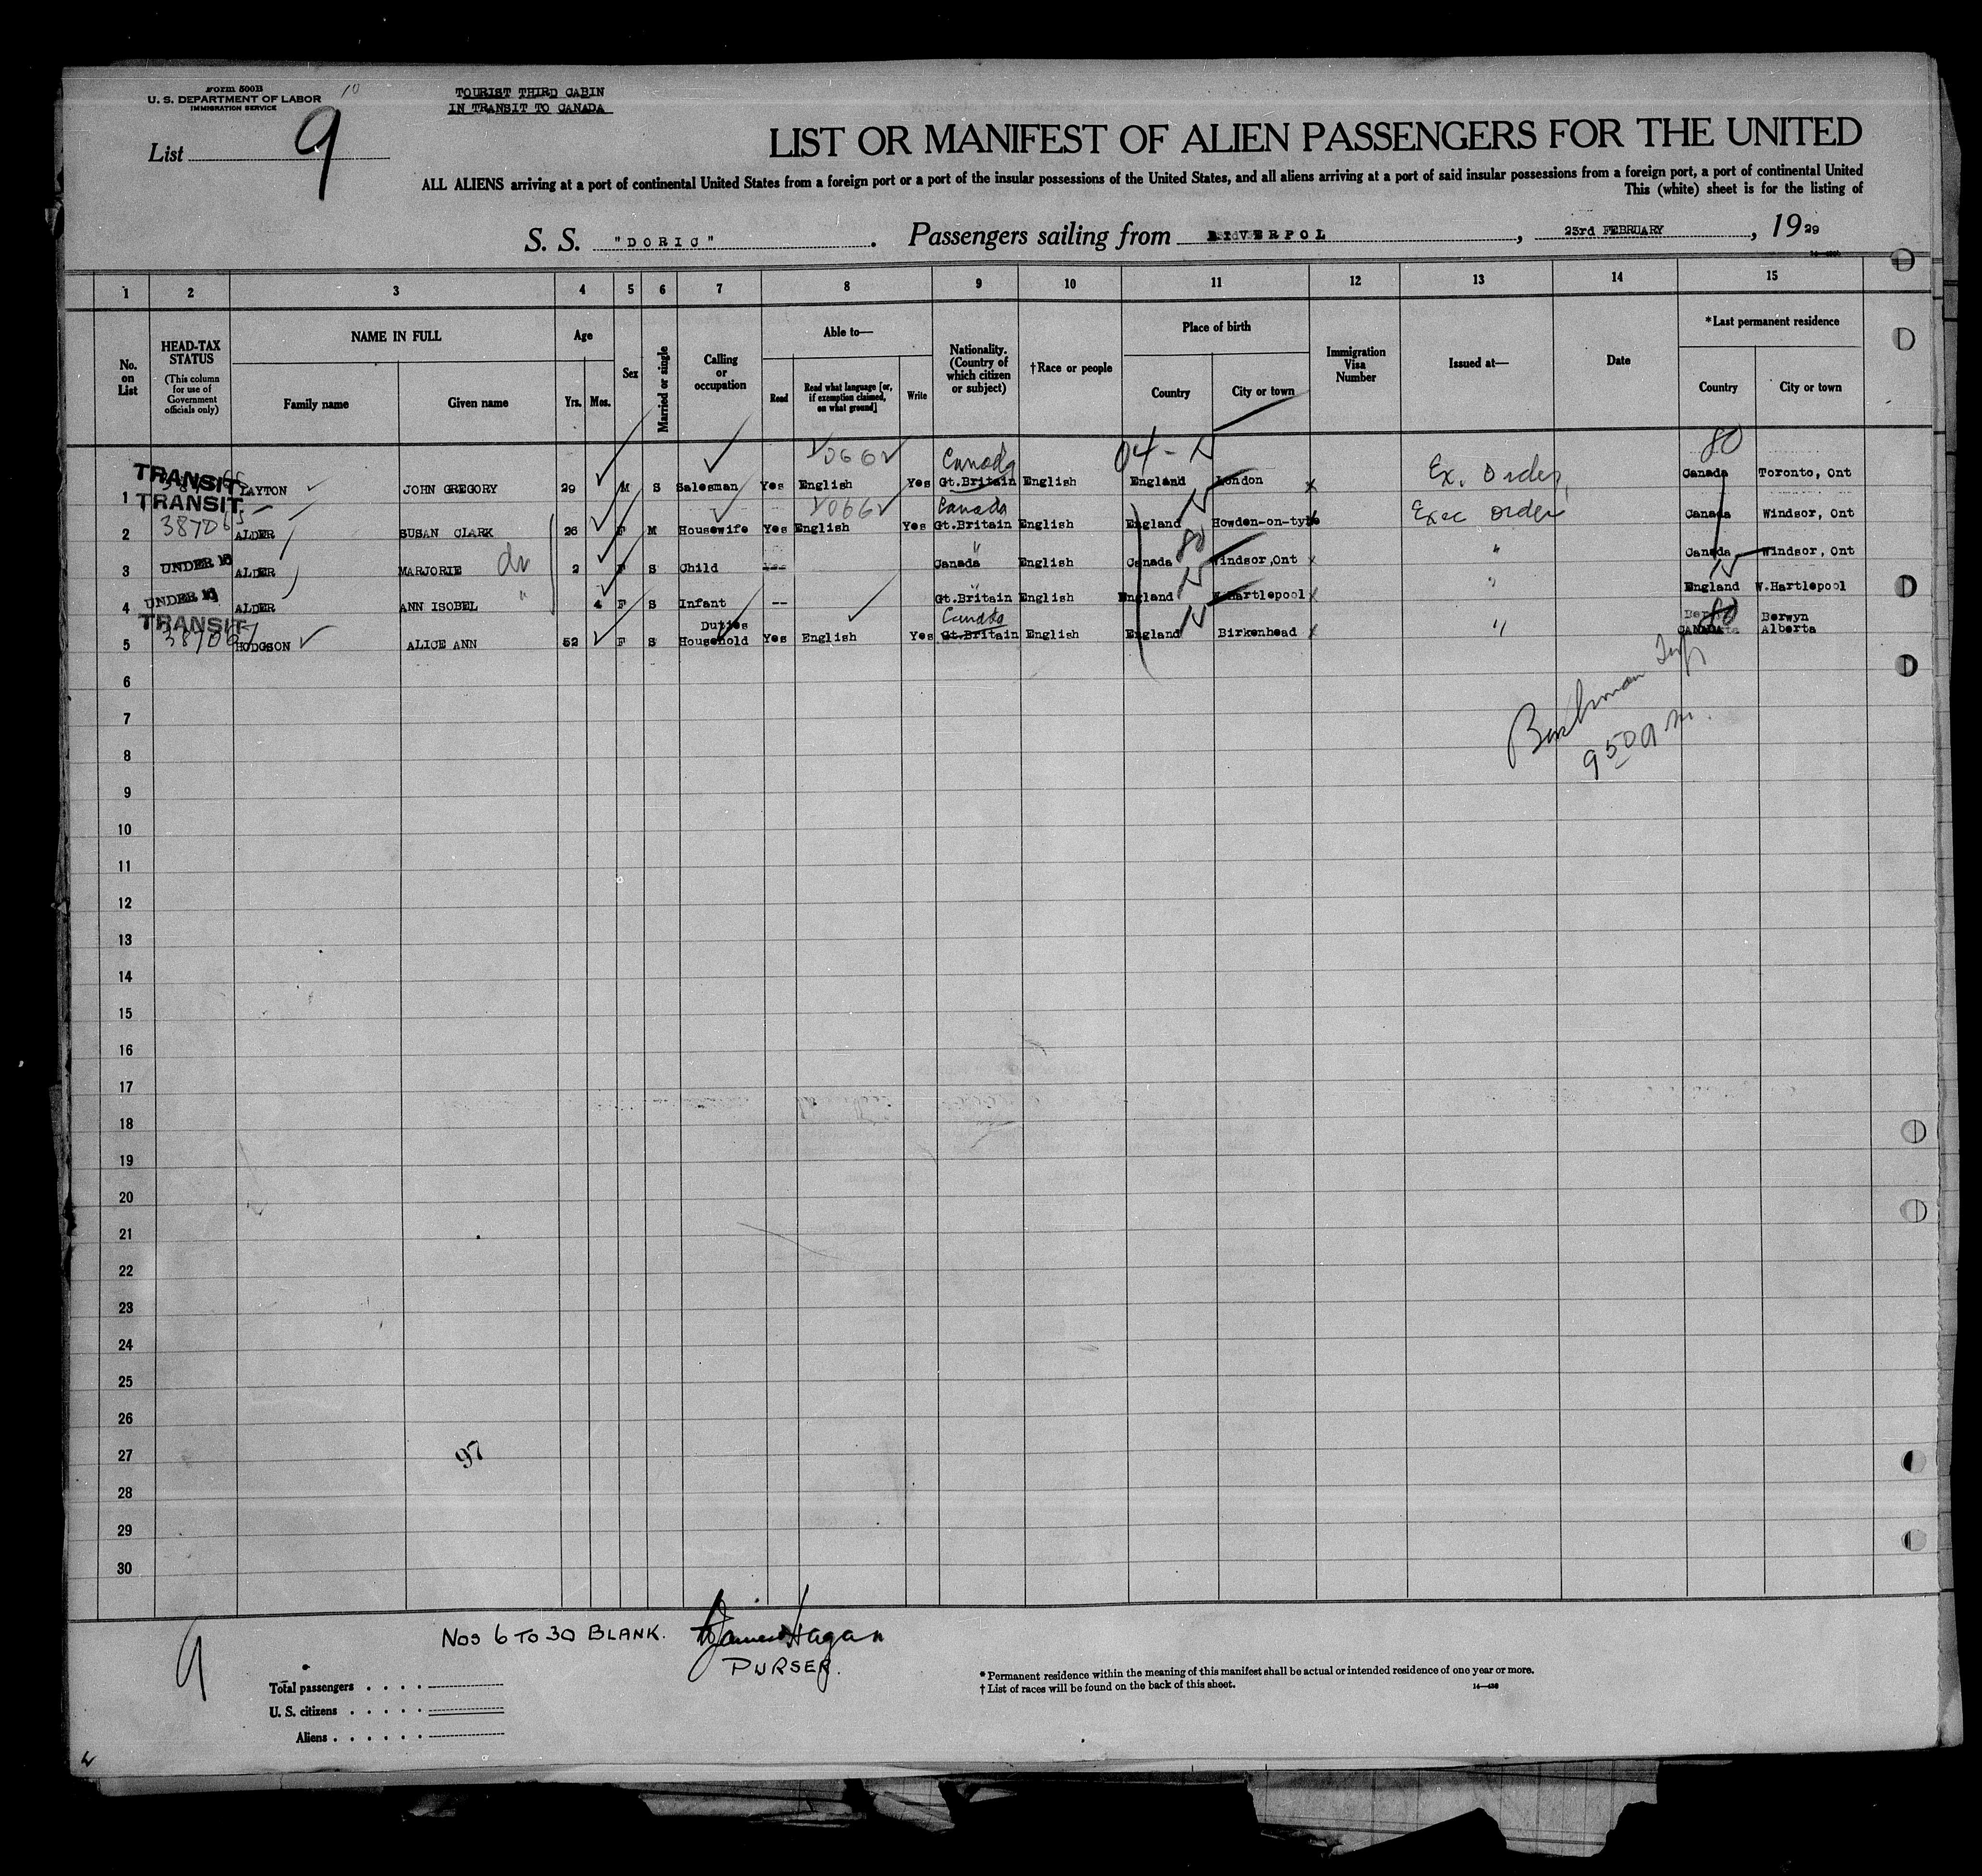 Form 500B
U. S. DEPARTMENT OF LABOR
IMMIGRATION SERVICE
10
TOURIST THIRD CABIN
IN TRANSIT TO CANADA
List 9
LIST OR MANIFEST OF ALIEN PASSENGERS FOR THE UNITED
ALL ALIENS arriving at a port of continental United States from a foreign port or a port of the insular possessions of the United States, and all aliens arriving at a port of said insular possessions from a foreign port, a port of continental United
This (white) sheet is for the listing of
S. S. "DORIC". Passengers sailing from LIVERPOL, 23rd FEBRUARY, 1929
1 2 3 4 5 6 7 8 9 10 11 12 13 14 15
No. on List
HEAD-TAX STATUS (This column for use of Government officials only)
NAME IN FULL Family name Given name
Age Yrs. Mos.
Sex
Married or single
Calling or occupation
Able to— Read Read what language [or, if exemption claimed, on what ground] Write
Nationality. (Country of which citizen or subject)
†Race or people
Place of birth Country City or town
Immigration Visa Number
Issued at—
Date
*Last permanent residence Country City or town
0662 Canada 04- 80
1 TRANSIT LAYTON JOHN GREGORY 29 M S Salesman Yes English Yes Gt.Britain English England London x Ex. Order Canada Toronto, Ont
TRANSIT 0662 Canada
2 ALDER SUSAN CLARK 26 F M Housewife Yes English Yes Gt.Britain English England Howden-on-tyne Exec order Canada Windsor, Ont
3 UNDER 16 ALDER MARJORIE 2 F S Child --- Canada English Canada 80 Windsor,Ont x " Canada Windsor, Ont
4 UNDER 16 ALDER ANN ISOBEL " 4 F S Infant -- Gt.Britain English England W.Hartlepool x " England W.Hartlepool
TRANSIT Duties Canada 80 Berwyn
5 HODGSON ALICE ANN 52 F S Household Yes English Yes Gt.Britain English England Birkenhead x " CANADA Alberta
6
7
9 50 a m.
8
9
10
11
12
13
14
15
16
17
18
19
20
21
22
23
24
25
26
27 97
28
29
30
9
NOS 6 TO 30 BLANK. Hagan
PURSER.
Total passengers . . . .
U. S. citizens . . . . .
Aliens . . . . . .
* Permanent residence within the meaning of this manifest shall be actual or intended residence of one year or more.
† List of races will be found on the back of this sheet.